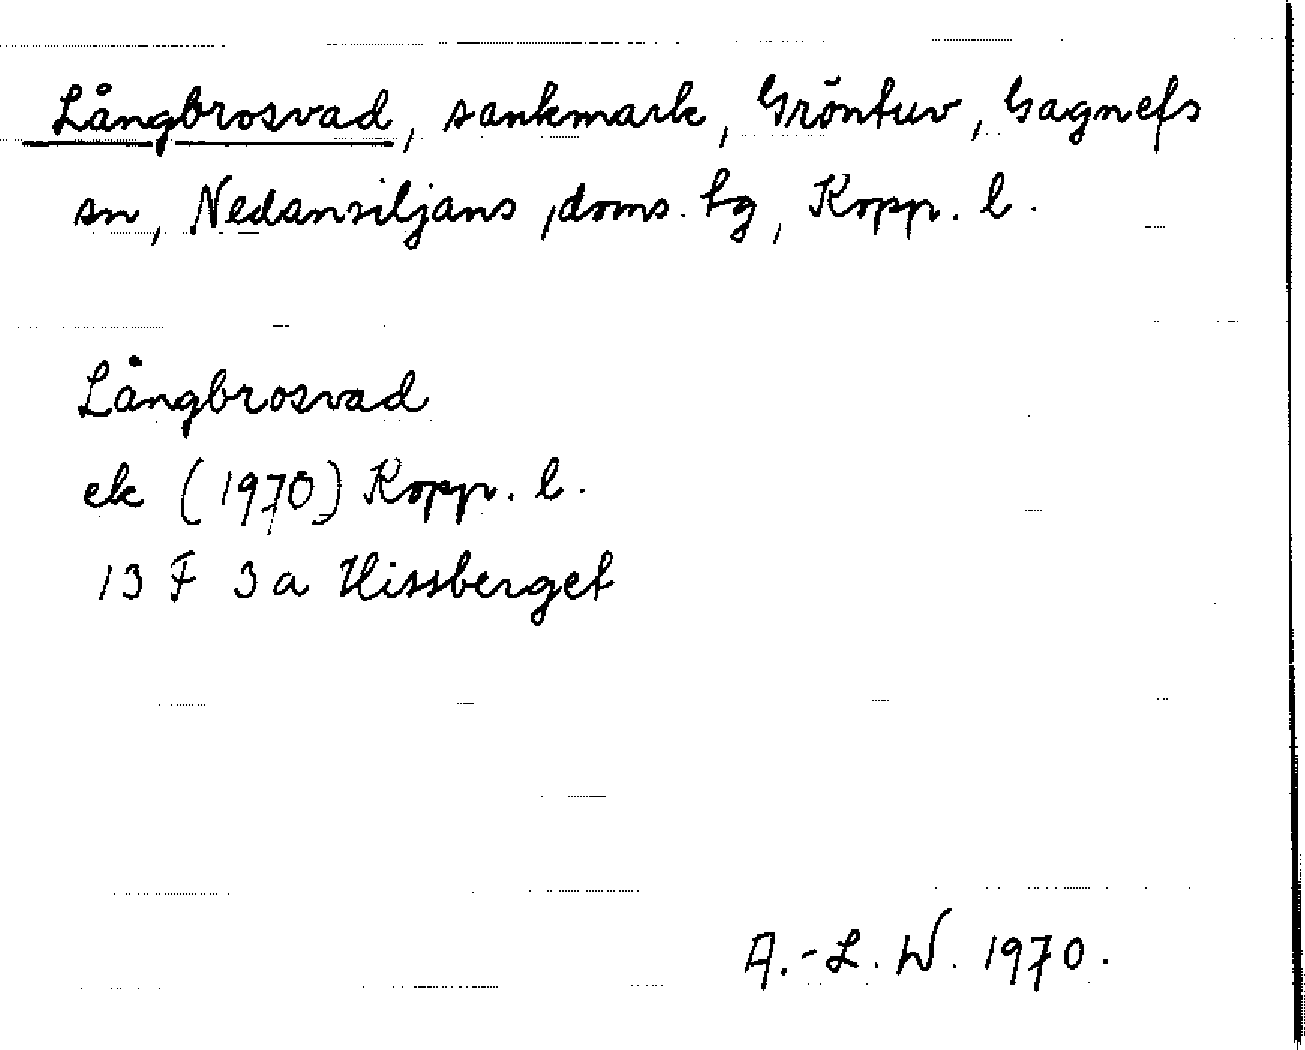 Långbrosvad, sankmark, Gröntuv, Gagnefs
sn, Nedansiljans, doms. tg, Kopp. l.
Långbrosvad
ek (1970) Kopp. l.
13 F 3a Hissberget
A.-L. W. 1970.